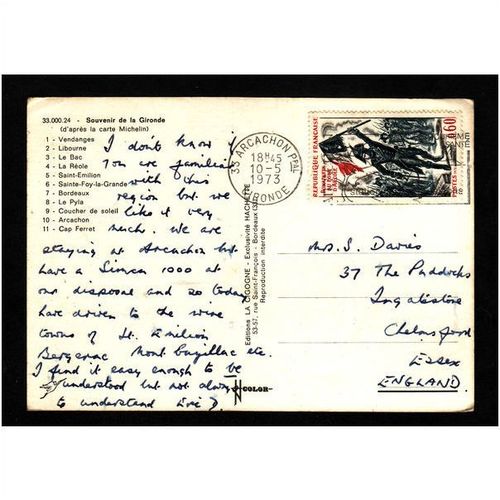 33.000.24 - Souvenir de la Gironde
(d'après la carte Michelin)
1 - Vendanges
2 - Libourne
3 - Le Bac
4 - La Réole
5 - Saint-Emilion
6 - Sainte-Foy-la-Grande
7 - Bordeaux
8 - Le Pyla
9 - Coucher de soleil
10 - Arcachon
11 - Cap Ferret
I don't know if
you are familiar
with this
region but we
like it very
much. We are
staying at Arcachon but
have a Simca 1000 at
our disposal and so today
have driven to the wine
towns of St. Emilion
Bergerac Montbazillac etc.
I find it easy enough to be
understood but not always
to understand Eric D.
Editions LA CIGOGNE - Exclusivité HACHETTE
53-57, rue Saint-François - Bordeaux (33)
Reproduction interdite
COLOR
33 ARCACHON PPAL
18H45
10-5
1973
GIRONDE
REPUBLIQUE FRANÇAISE
0,60
POSTES
Mrs. S. Davis
37 The Paddocks
Ingatestone
Chelmsford
ESSEX
ENGLAND.